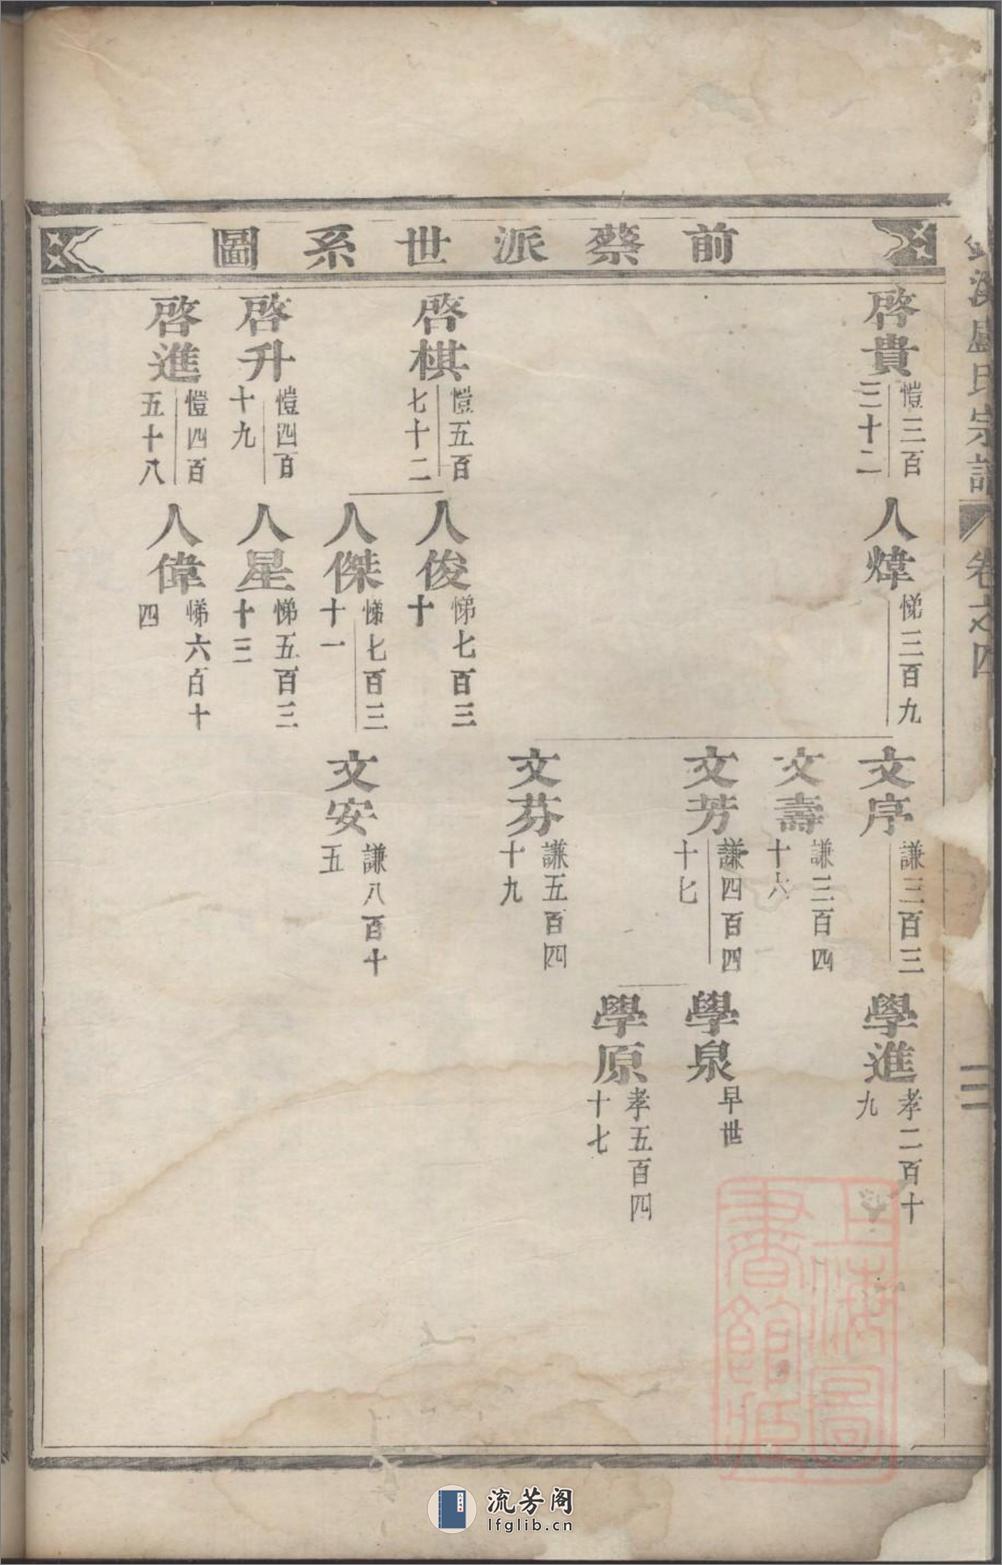 前蔡派世系圖
啓貴
愷三百
三十二
人煒
悌三百九
文序
謙三百三
學進
孝二百十
九
文壽
謙三百四
十六
文芳
謙四百四
十七
學泉
早世
學原
孝五百四
十七
文芬
謙五百四
十九
啓棋
愷五百
七十二
人俊
悌七百三
十
人傑
悌七百三
十一
文安
謙八百十
五
啓升
愷四百
十九
人星
悌五百三
十三
啓進
愷四百
五十八
人偉
悌六百十
四
溪盧氏宗譜
卷之四
上海圖
書館藏
流芳阁
lfglib.cn